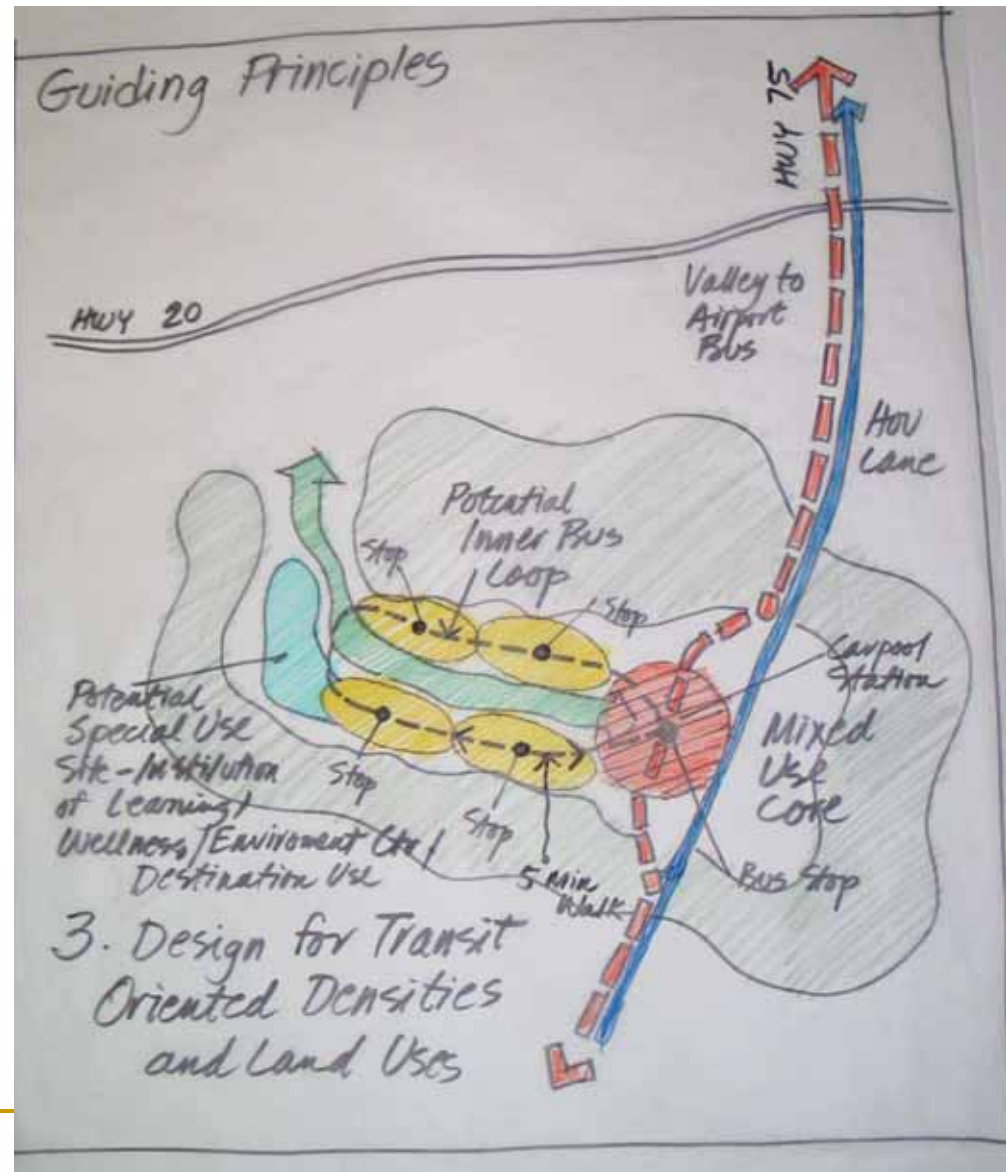 Guiding Principles
HWY 75
HWY 20
Valley to
Airport
Bus
HOV
Lane
Potential
Inner Bus
Loop
Stop
Stop
Carpool
Station
Mixed
Use
Core
Potential
Special Use
Site-Institution
of Learning/
Wellness/Enviroment Ctr/
Destination Use
Stop
Stop
5 Min
Walk
Bus Stop
3. Design for Transit
Oriented Densities
and Land Uses